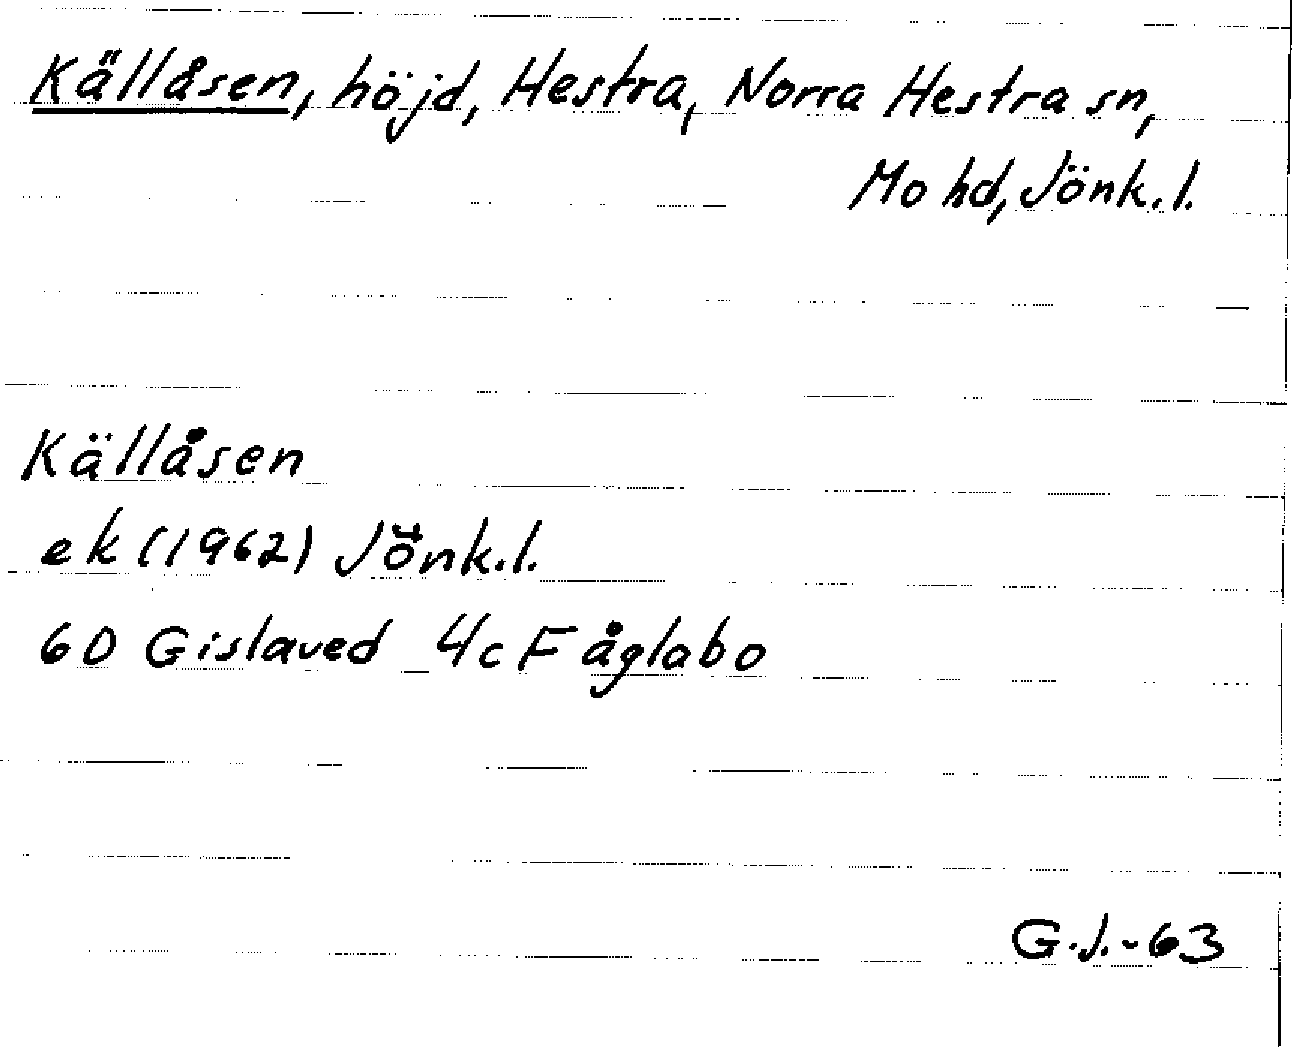 Källåsen, höjd, Hestra, Norra Hestra sn,
Mo hd, Jönk.l.
Källåsen
ek (1962) Jönk.l.
6D Gislaved 4c F åglabo
G.J.-63